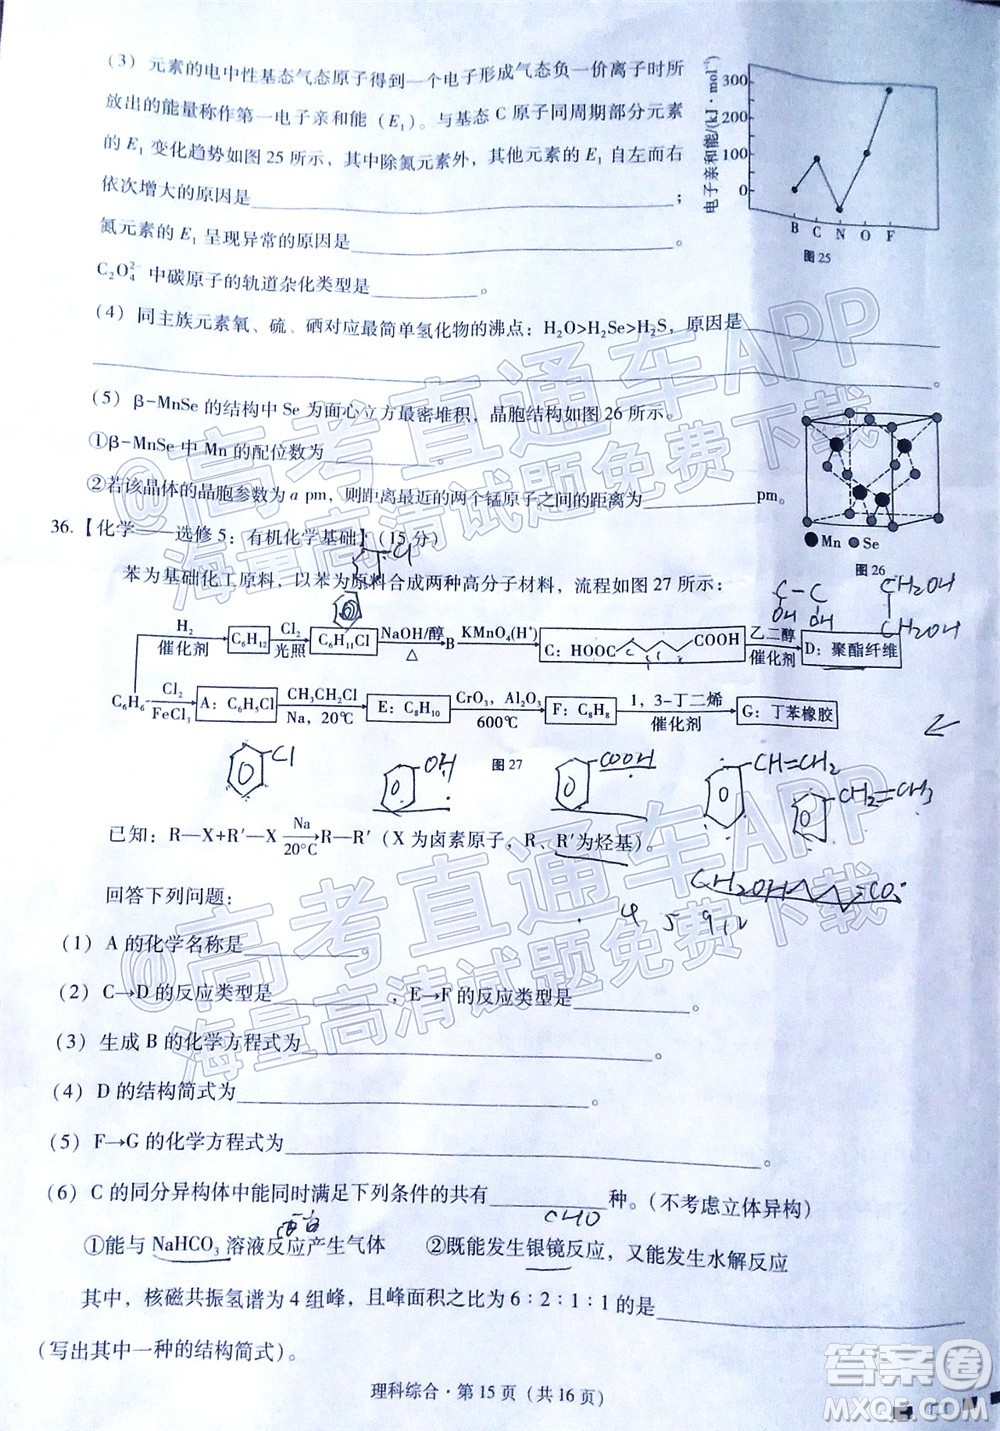 (3) 元素的电中性基态气态原子得到一个电子形成气态负一价离子时所
放出的能量称作第一电子亲和能(E₁)。与基态 C 原子同周期部分元素
的 E₁ 变化趋势如图 25 所示，其中除氮元素外，其他元素的 E₁ 自左而右
依次增大的原因是____________；
氮元素的 E₁ 呈现异常的原因是____________。
C₂O₄²⁻ 中碳原子的轨道杂化类型是________。
电子亲和能/(kJ·mol⁻¹)
300
200
100
0
B C N O F
图 25
(4) 同主族元素氧、硫、硒对应最简单氢化物的沸点：H₂O>H₂Se>H₂S，原因是________
____________。
(5) β-MnSe 的结构中 Se 为面心立方最密堆积，晶胞结构如图 26 所示。
①β-MnSe 中 Mn 的配位数为________
②若该晶体的晶胞参数为 a pm，则距离最近的两个锰原子之间的距离为________pm。
Mn Se
图 26
36.【化学——选修 5：有机化学基础】(15 分)
Cl
苯为基础化工原料，以苯为原料合成两种高分子材料，流程如图 27 所示：
C-C
OH OH
CH2OH
CH2OH
C₆H₆ H₂ 催化剂 C₆H₁₂ Cl₂ 光照 C₆H₁₁Cl NaOH/醇 △ B KMnO₄(H⁺) C：HOOC COOH 乙二醇 催化剂 D：聚酯纤维
Cl₂ FeCl₃ A：C₆H₅Cl CH₃CH₂Cl Na，20℃ E：C₈H₁₀ CrO₃，Al₂O₃ 600℃ F：C₈H₈ 1，3-丁二烯 催化剂 G：丁苯橡胶
图 27
Cl
OH
COOH
CH=CH2
CH2=CH3
已知：R—X+R′—X Na 20°C R—R′(X 为卤素原子，R、R′为烃基)。
回答下列问题：
4 5 9 12
(1) A 的化学名称是________
(2) C→D 的反应类型是________，E→F 的反应类型是________。
(3) 生成 B 的化学方程式为____________。
(4) D 的结构简式为____________。
(5) F→G 的化学方程式为____________。
(6) C 的同分异构体中能同时满足下列条件的共有________种。(不考虑立体异构)
CHO
①能与 NaHCO₃ 溶液反应产生气体 ②既能发生银镜反应，又能发生水解反应
其中，核磁共振氢谱为 4 组峰，且峰面积之比为 6：2：1：1 的是____________
(写出其中一种的结构简式)。
理科综合·第 15 页（共 16 页）
@高考直通车APP
海量高清试题免费下载
@高考直通车APP
海量高清试题免费下载
答案圈
MXQE.COM